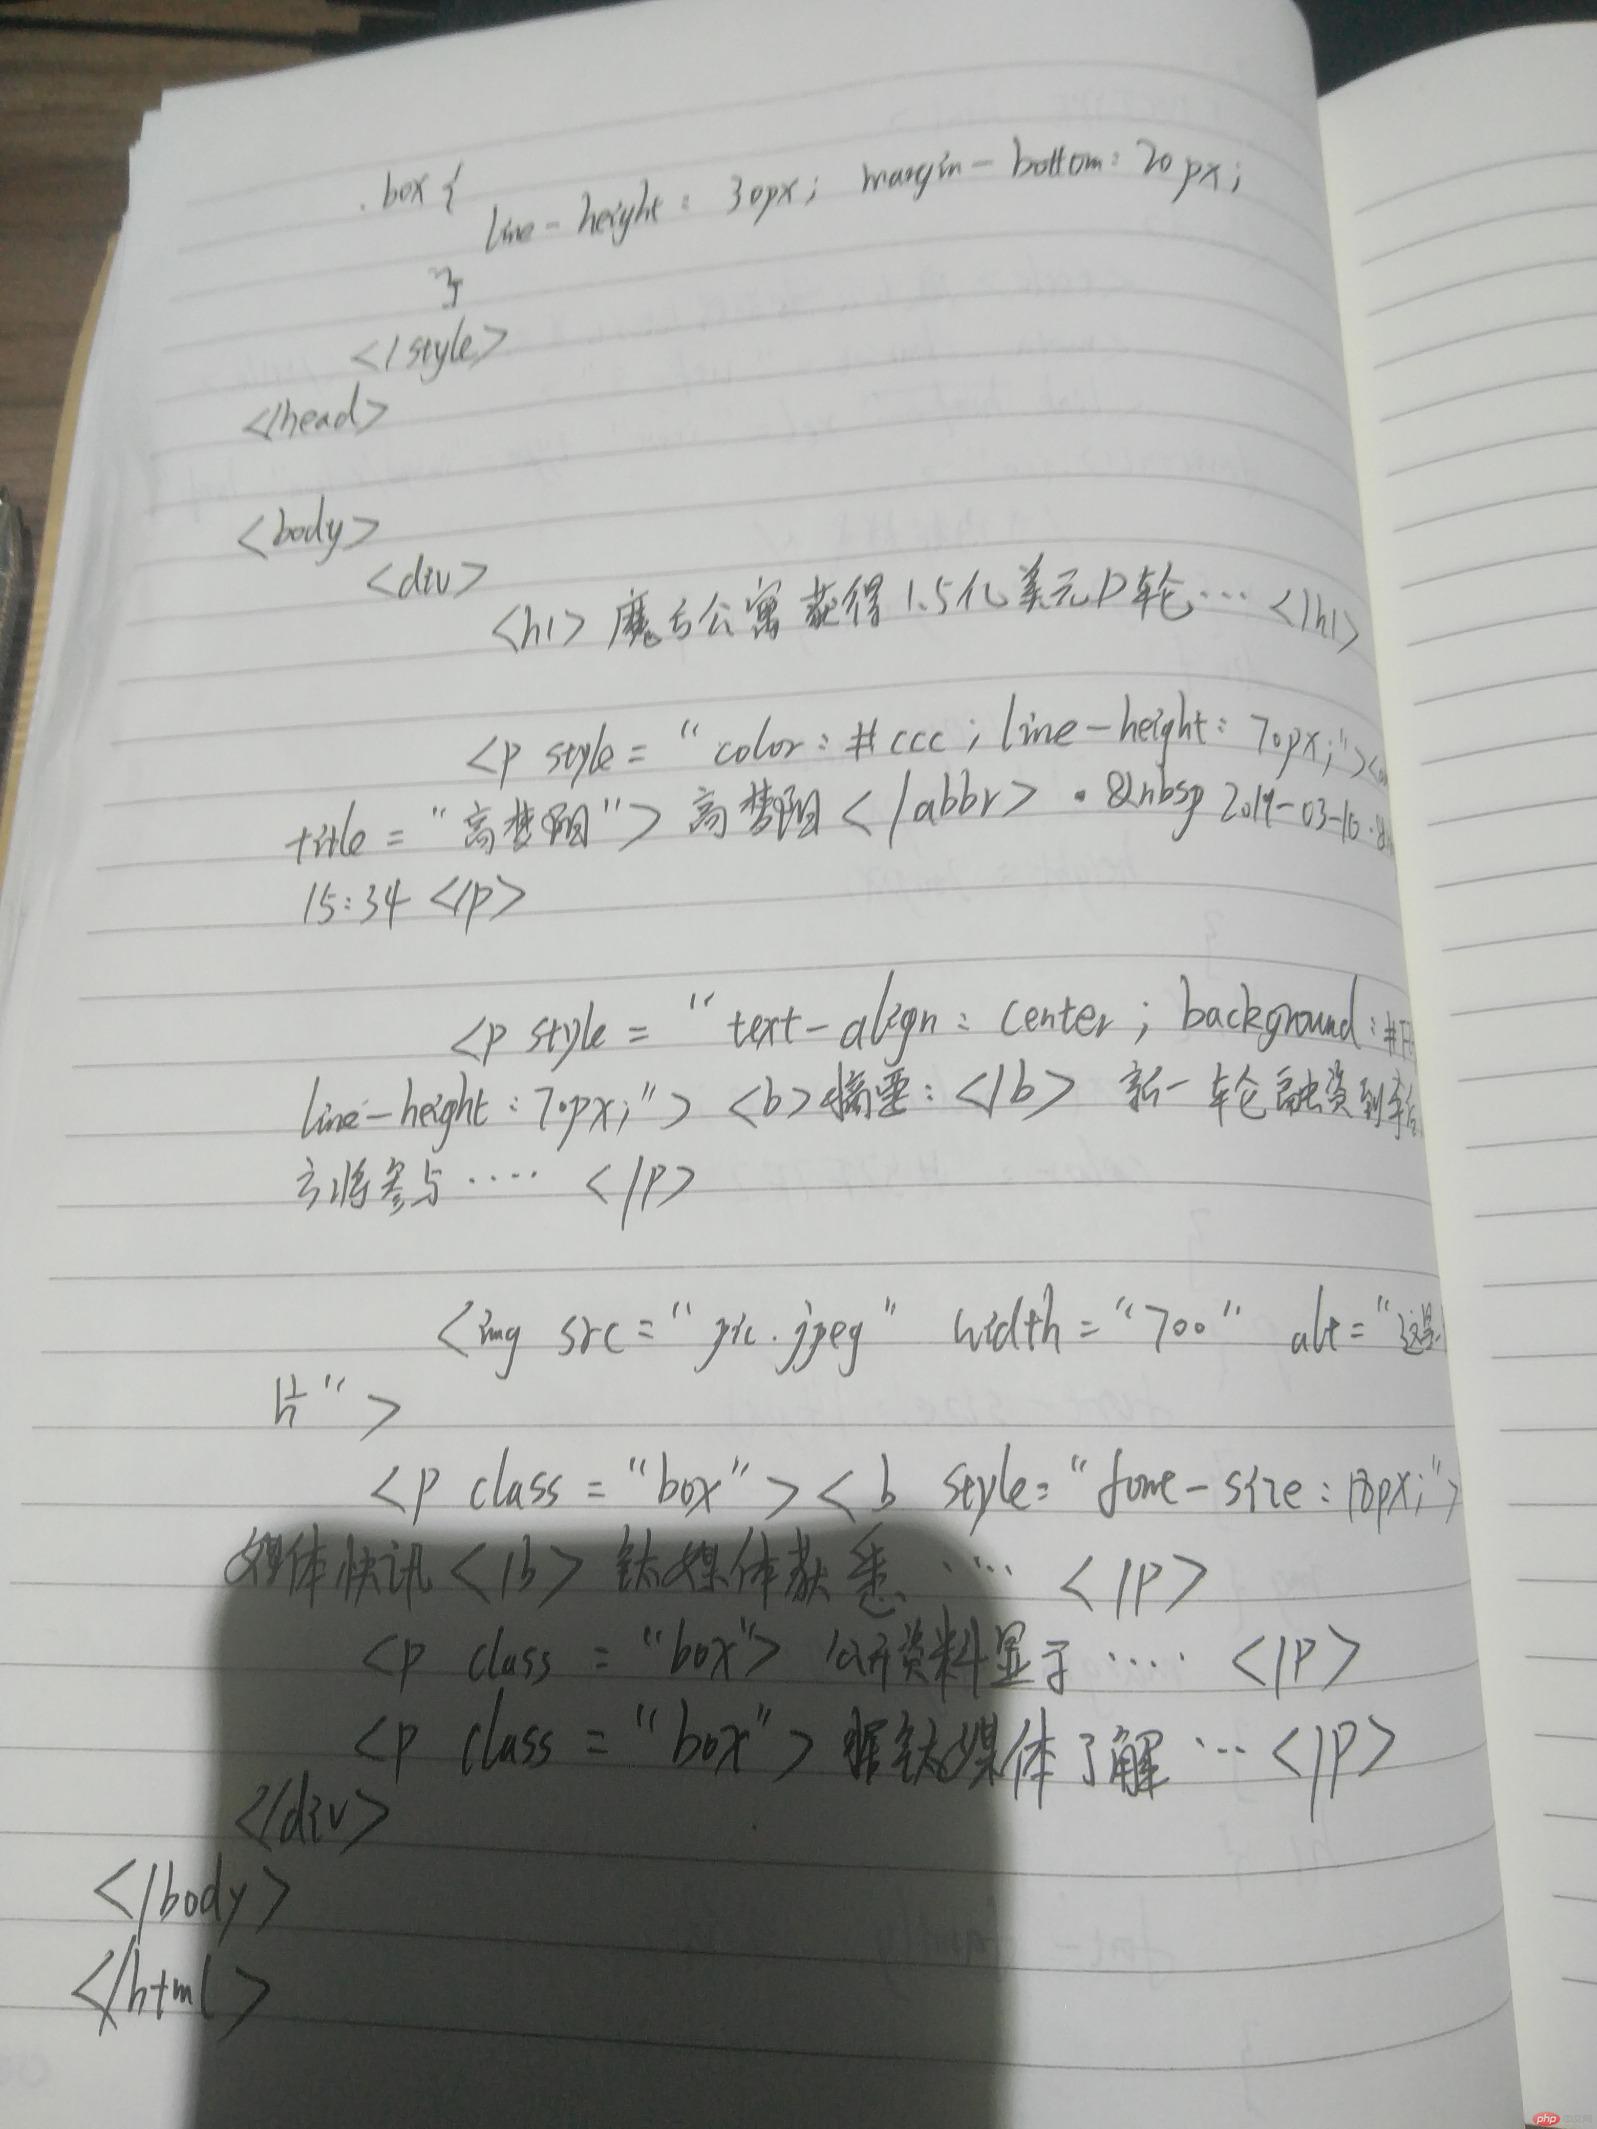 .box {
line-height: 30px; margin-bottom: 20px;
}
</style>
</head>
<body>
<div>
<h1> 魔方公寓获得1.5亿美元D轮… </h1>
<p style = "color: #ccc; line-height: 70px;"><
title = "高梦阳"> 高梦阳 </abbr> · &nbsp 2019-03-10 ·
15:34 </p>
<p style = "text-align: center; background:
line-height: 70px;"> <b>摘要:</b> 新一轮融资到
言将参与 ···· </p>
<img src = "pic.jpeg" width = "700" alt = "这是
片">
<p class = "box"><b style= "font-size: 18px;">
媒体快讯 </b> 钛媒体获悉 ···· </p>
<p class = "box"> 公开资料显于 ···· </p>
<p class = "box"> 据钛媒体了解 ··· </p>
</div>
</body>
</html>
php